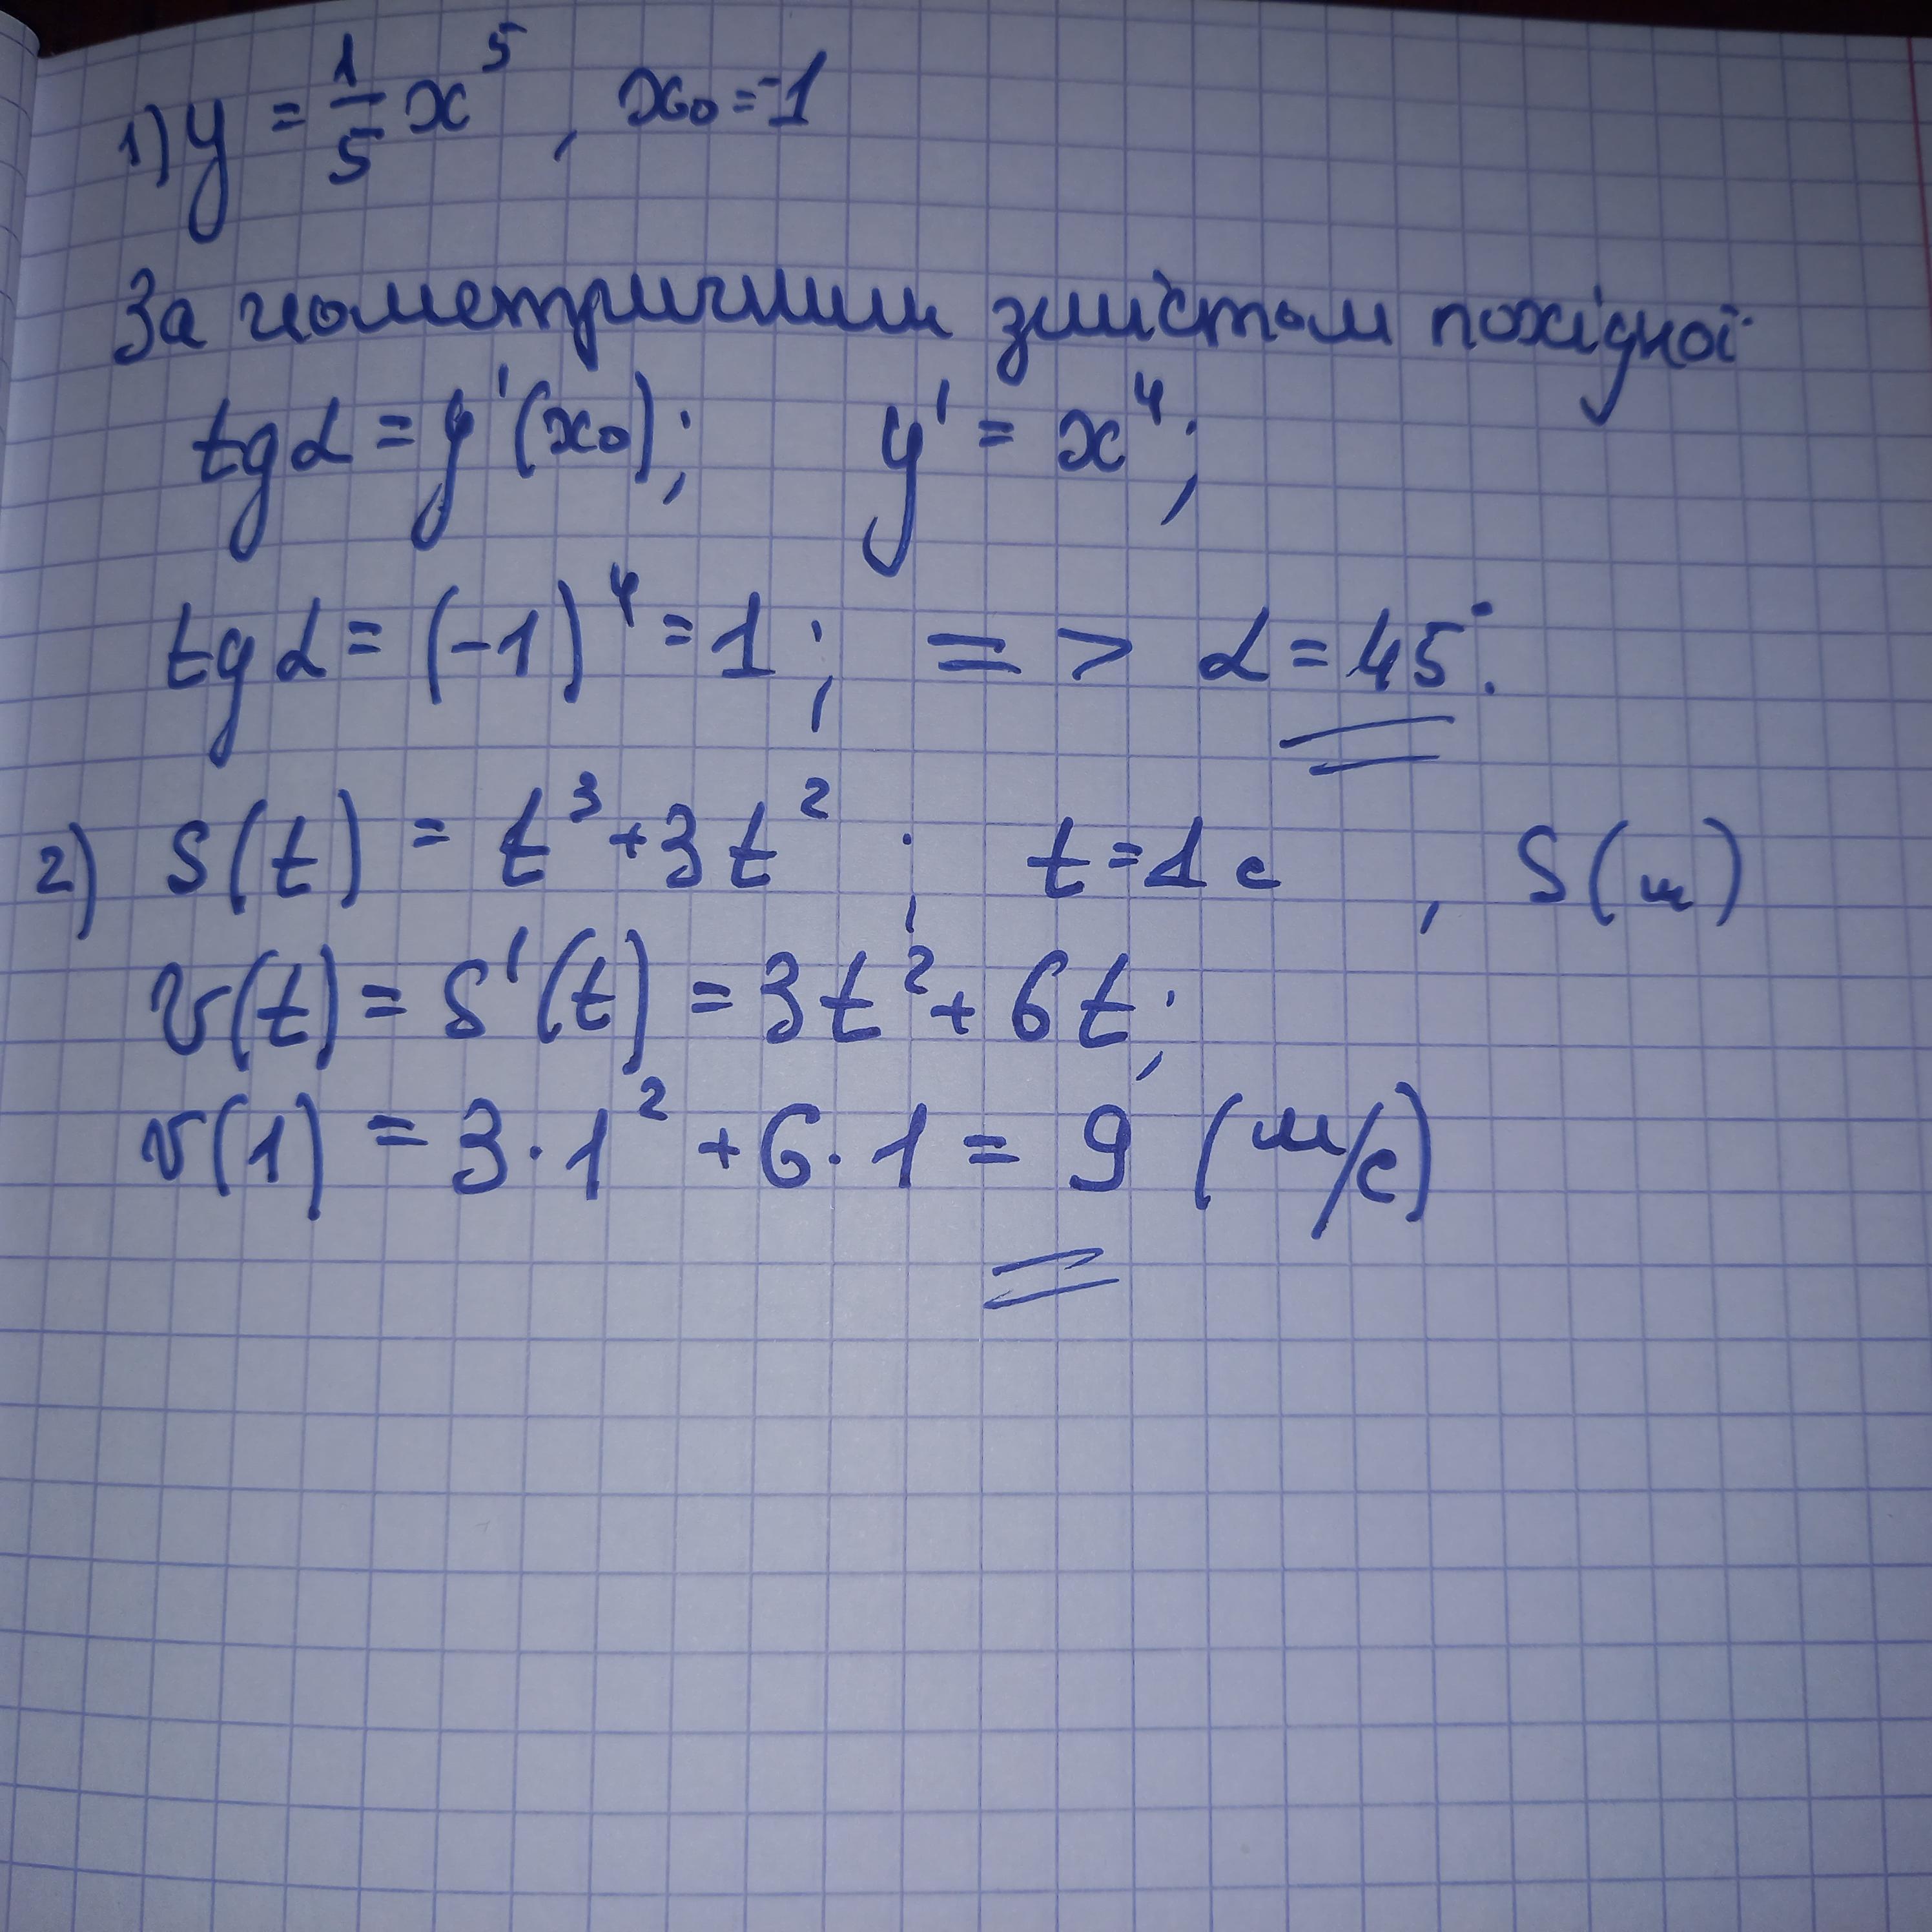 1) y = 1/5 x⁵, x₀ = -1
За геометричним змістом похідної
tg α = y'(x₀); y' = x⁴;
tg α = (-1)⁴ = 1; => α = 45°.
2) S(t) = t³ + 3t²; t = 1 c, S(м)
v(t) = S'(t) = 3t² + 6t;
v(1) = 3·1² + 6·1 = 9 (м/с)